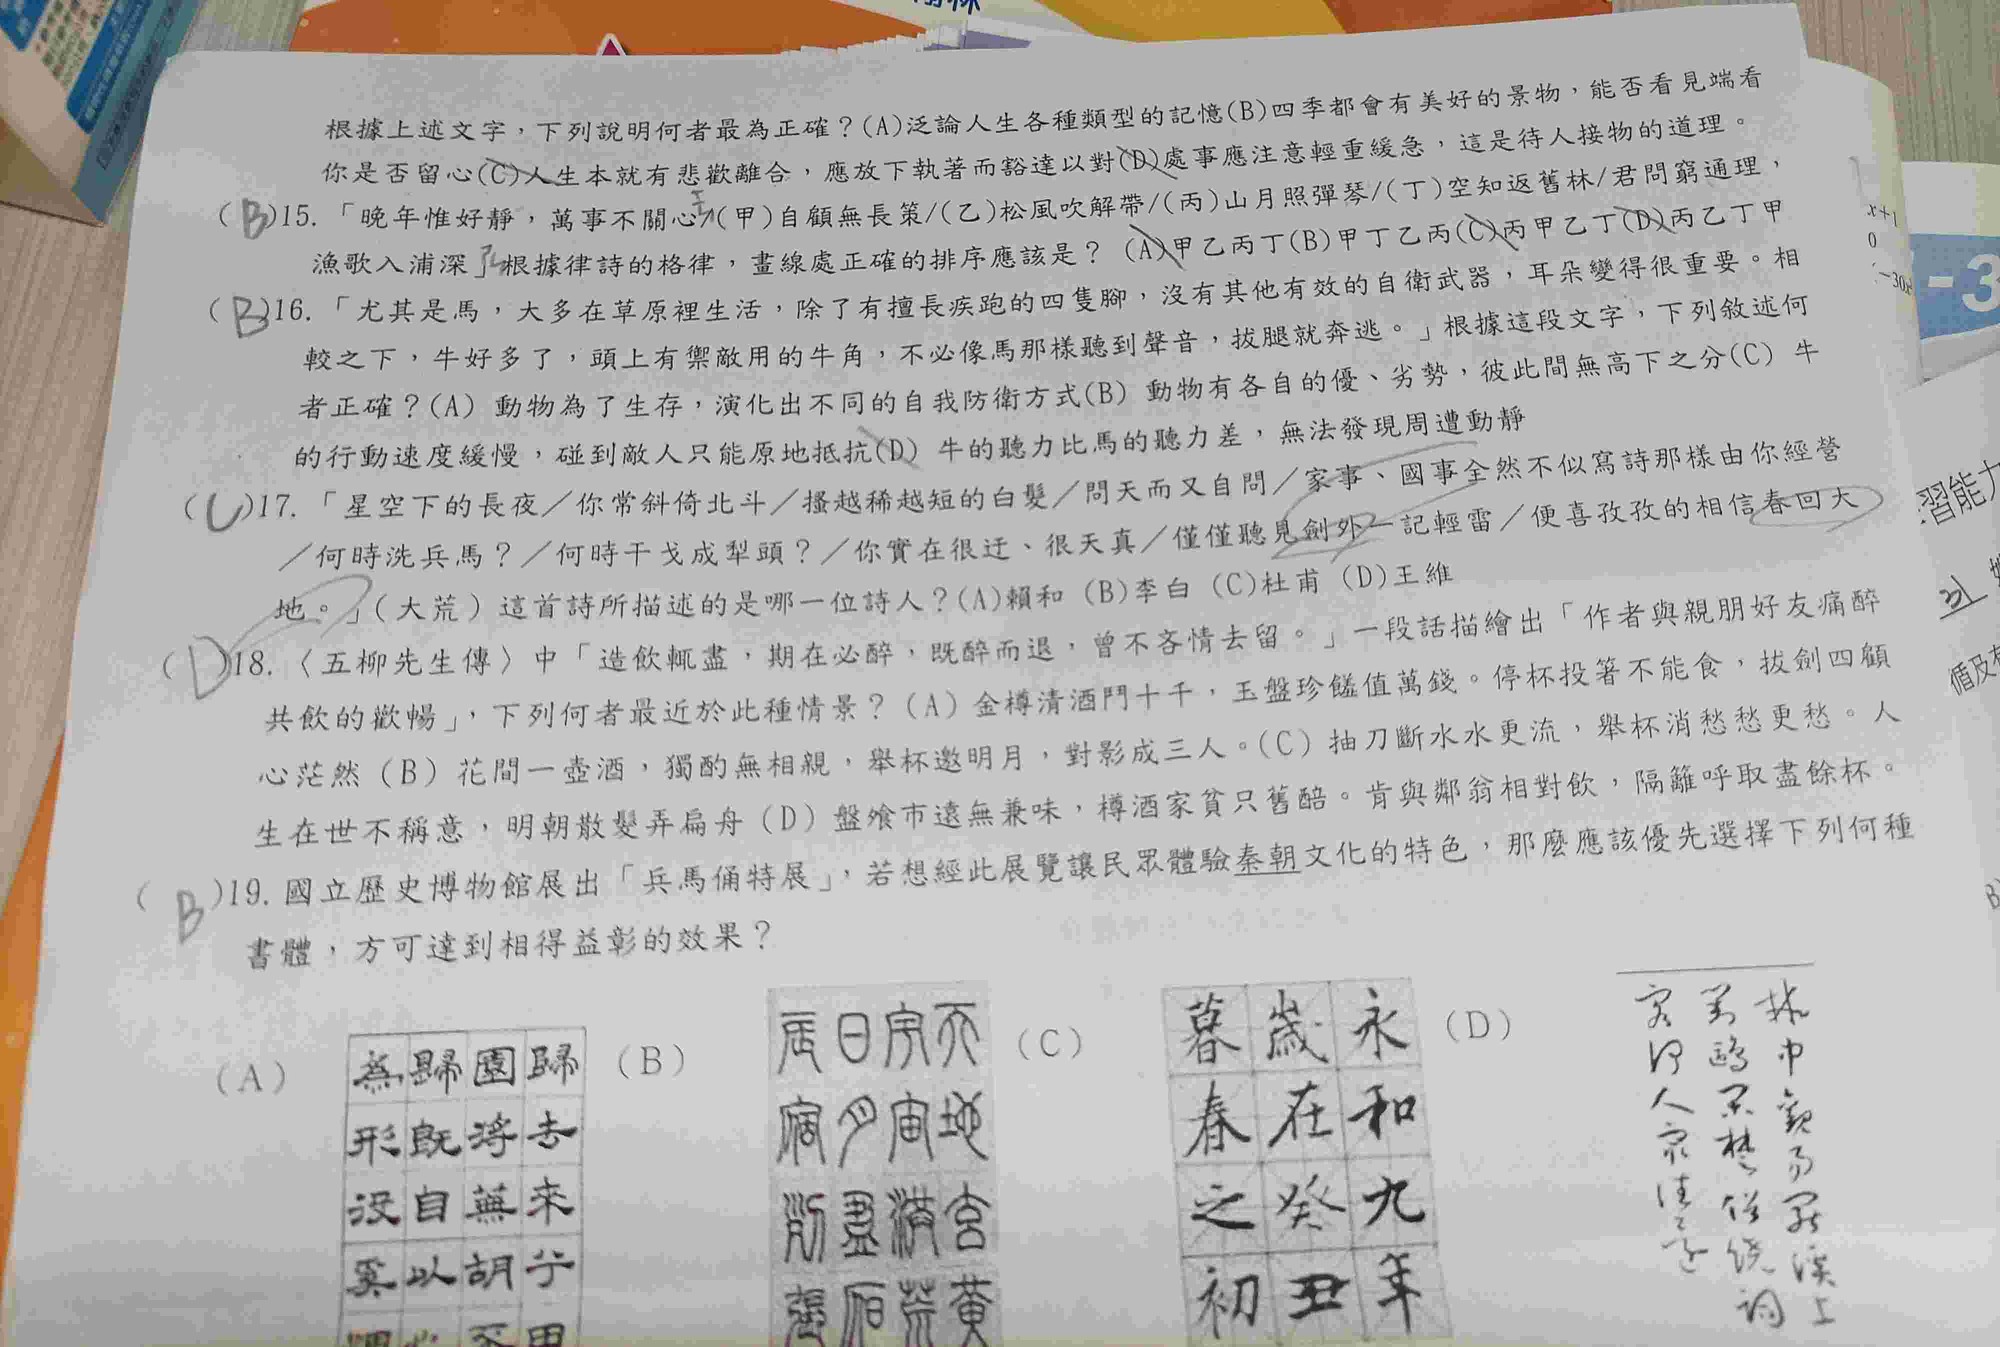 根據上述文字，下列說明何者最為正確？(A)泛論人生各種類型的記憶(B)四季都會有美好的景物，能否看見端看
你是否留心(C)人生本就有悲歡離合，應放下執著而豁達以對(D)處事應注意輕重緩急，這是待人接物的道理。
(B)15.「晚年惟好靜，萬事不關心/(甲)自顧無長策/(乙)松風吹解帶/(丙)山月照彈琴/(丁)空知返舊林/君問窮通理，
漁歌入浦深」根據律詩的格律，畫線處正確的排序應該是？(A)甲乙丙丁(B)甲丁乙丙(C)丙甲乙丁(D)丙乙丁甲
(B)16.「尤其是馬，大多在草原裡生活，除了有擅長疾跑的四隻腳，沒有其他有效的自衛武器，耳朵變得很重要。相
較之下，牛好多了，頭上有禦敵用的牛角，不必像馬那樣聽到聲音，拔腿就奔逃。」根據這段文字，下列敘述何
者正確？(A) 動物為了生存，演化出不同的自我防衛方式(B) 動物有各自的優、劣勢，彼此間無高下之分(C) 牛
的行動速度緩慢，碰到敵人只能原地抵抗(D) 牛的聽力比馬的聽力差，無法發現周遭動靜
(C)17.「星空下的長夜／你常斜倚北斗／搔越稀越短的白髮／問天而又自問／家事、國事全然不似寫詩那樣由你經營
／何時洗兵馬？／何時干戈成犁頭？／你實在很迂、很天真／僅僅聽見劍外一記輕雷／便喜孜孜的相信春回大
地。」(大荒) 這首詩所描述的是哪一位詩人？(A)賴和 (B)李白 (C)杜甫 (D)王維
(D)18.〈五柳先生傳〉中「造飲輒盡，期在必醉，既醉而退，曾不吝情去留。」一段話描繪出「作者與親朋好友痛醉
共飲的歡暢」，下列何者最近於此種情景？(A) 金樽清酒鬥十千，玉盤珍饈值萬錢。停杯投箸不能食，拔劍四顧
心茫然 (B) 花間一壺酒，獨酌無相親，舉杯邀明月，對影成三人。(C) 抽刀斷水水更流，舉杯消愁愁更愁。人
生在世不稱意，明朝散髮弄扁舟 (D) 盤飧市遠無兼味，樽酒家貧只舊醅。肯與鄰翁相對飲，隔籬呼取盡餘杯。
(B)19.國立歷史博物館展出「兵馬俑特展」，若想經此展覽讓民眾體驗秦朝文化的特色，那麼應該優先選擇下列何種
書體，方可達到相得益彰的效果？
(A)
歸去來兮
園將蕪胡
歸既自以
為形役奚
(B)
天地玄黃
宇宙洪荒
日月盈
辰宿列張
(C)
永和九年
歲在癸丑
暮春之初
(D)
習能力
-3